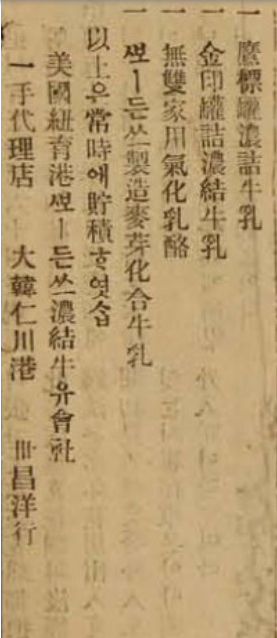 一 鷹標罐詰濃結牛乳
一 金印罐詰濃結牛乳
一 無雙家用氣化乳酪
一 ᄲᅩㅣ든쓰製造麥芽化合牛乳
以上은常時에貯積ᄒᆞ엿ᄉᆞᆸ
美國紐育港ᄲᅩㅣ든쓰濃結牛유會社
一手代理店 大韓仁川港 世昌洋行